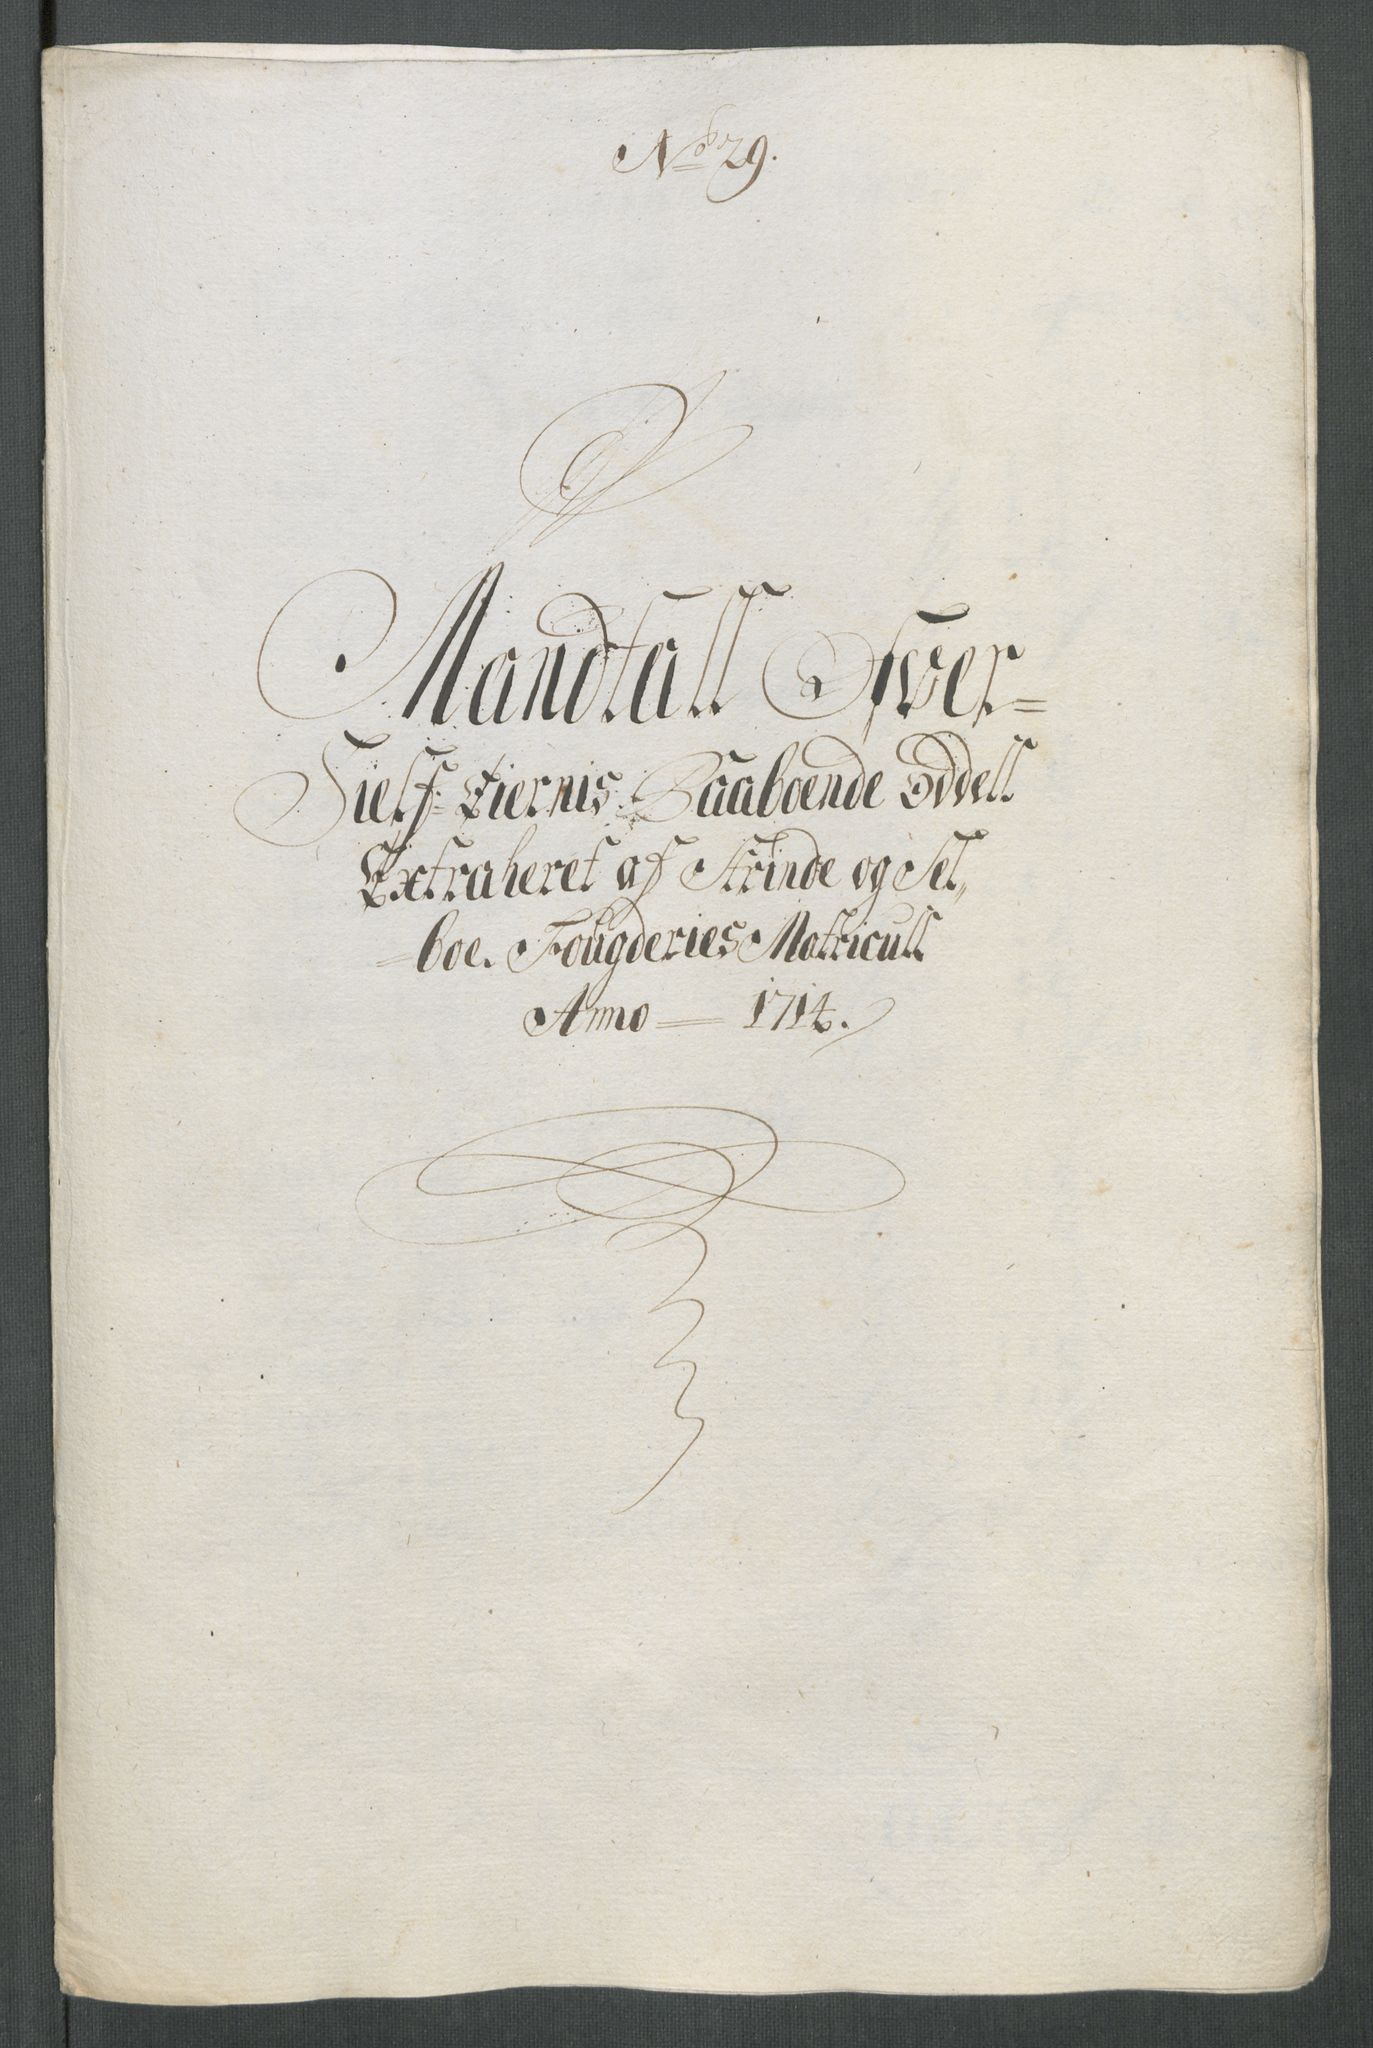 No 29.
Mandtall Ofwer=
Sielf: Eiernis Paaboende Oddell
Extraheret af Strinde og Sel„
=boe. Fougderies Matricull
Anno = 1714.